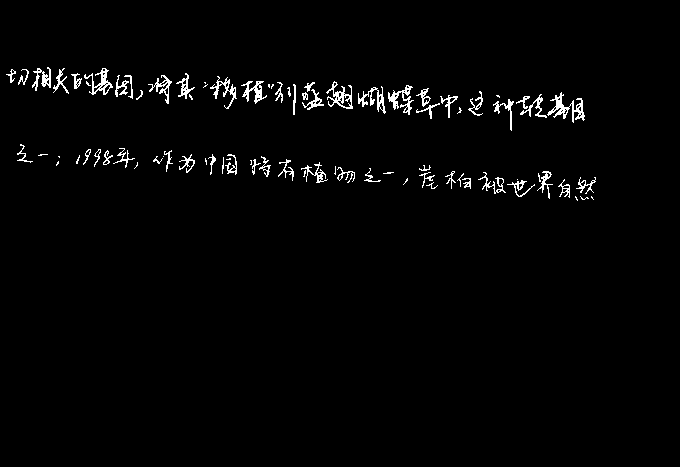 切相关的基因,将其“移植”到蓝翅蝴蝶草中,这种转基因
之一;1998年,作为中国特有植物之一,崖柏被世界自然